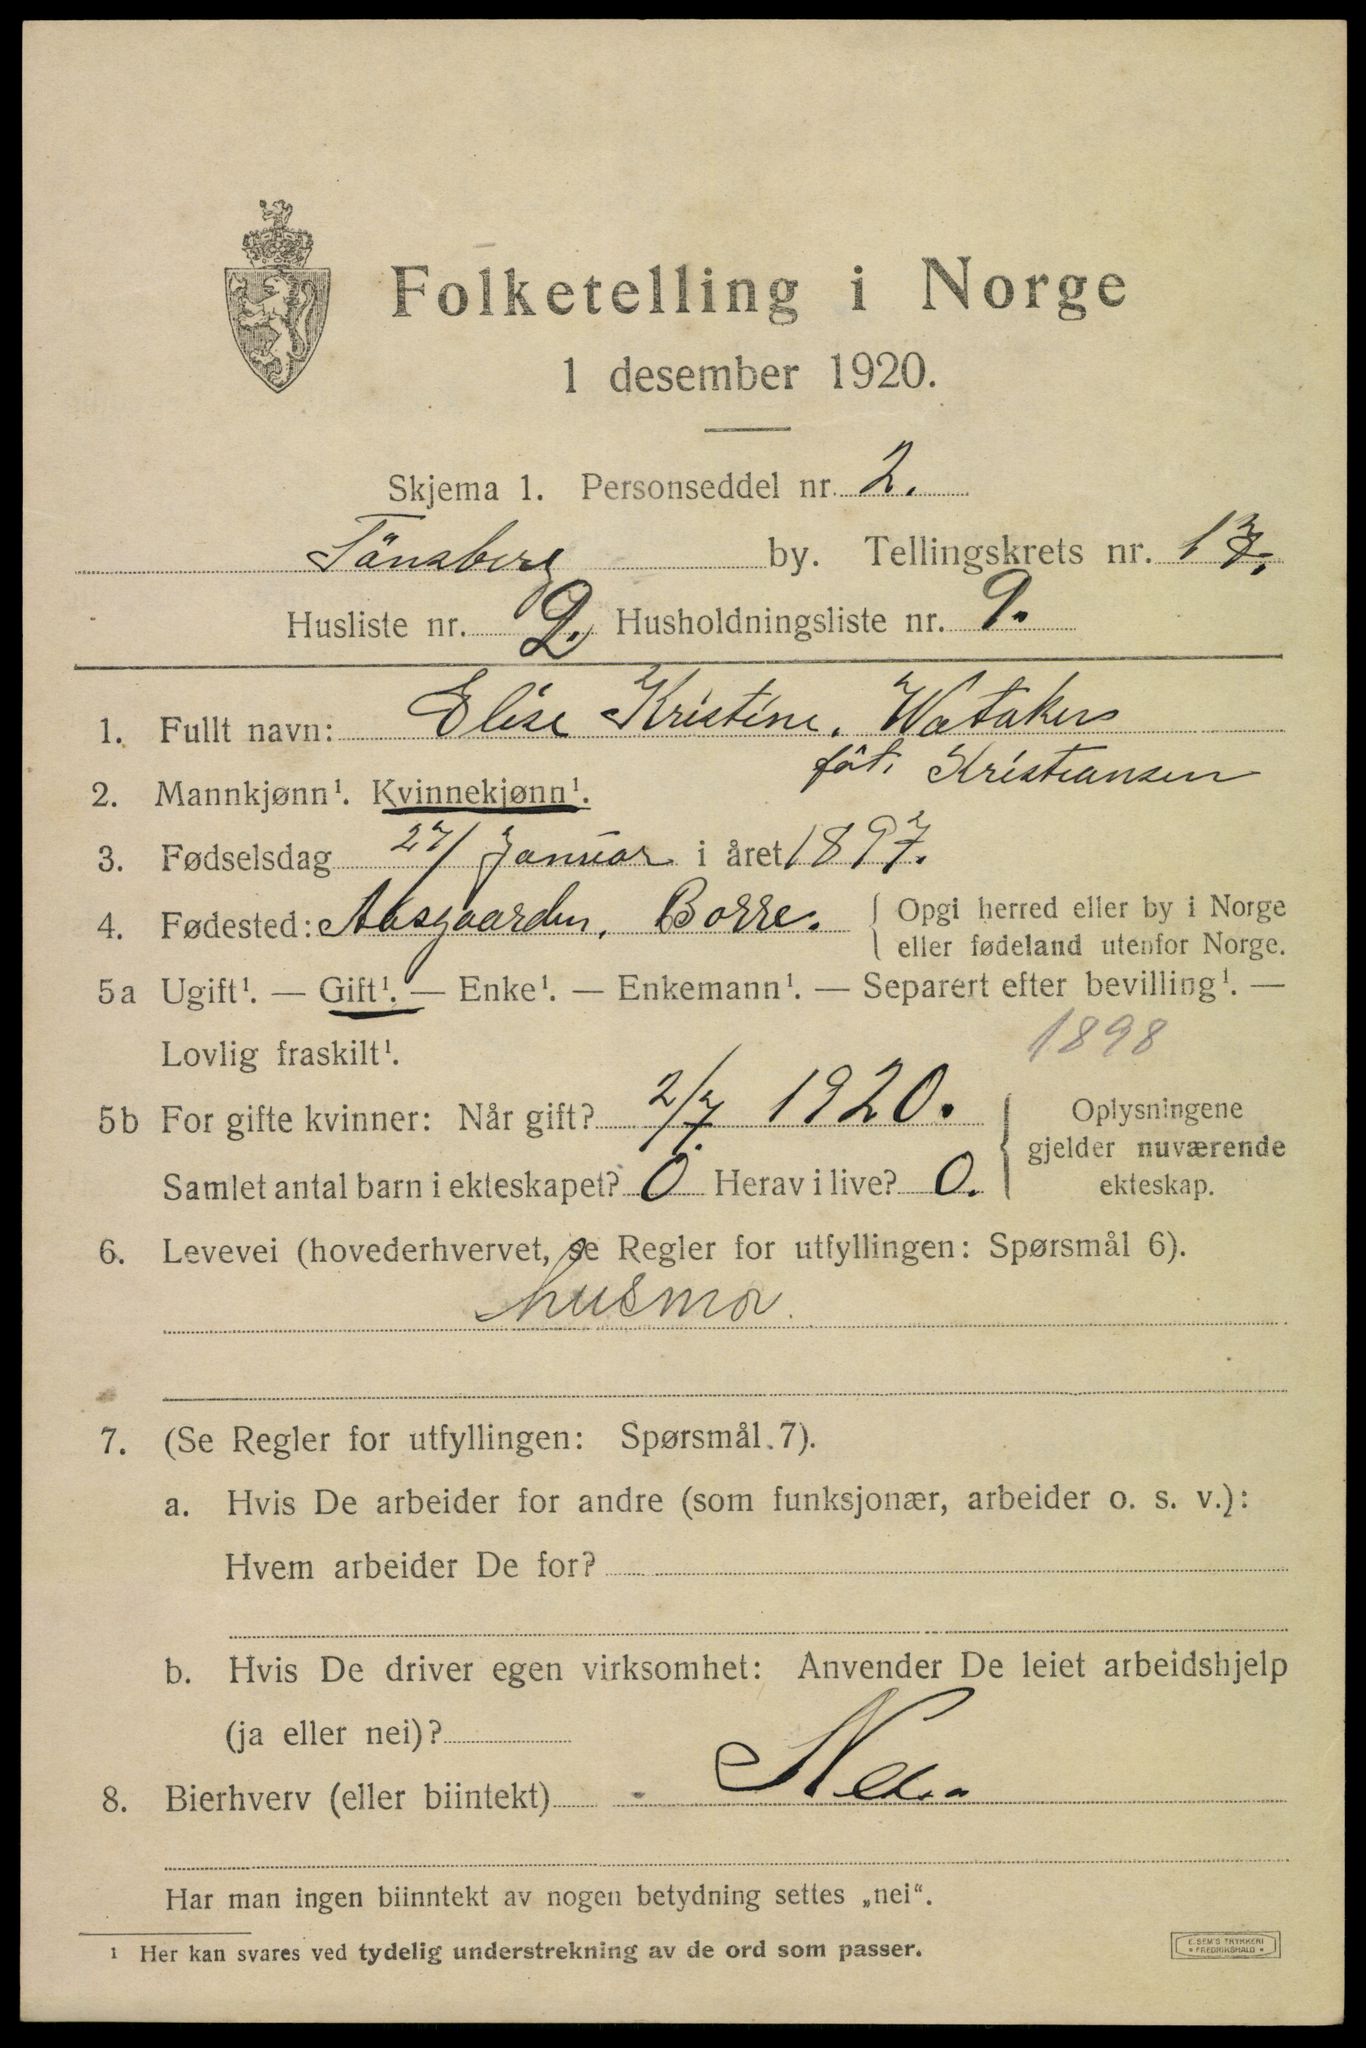 Folketelling i Norge
1 desember 1920.
Skjema 1. Personseddel nr. 2.
Tönsberg by. Tellingskrets nr. 17.
Husliste nr. 2. Husholdningsliste nr. 9.
1. Fullt navn: Elise Kristine. Watakers
föt. Kristiansen
2. Mannkjønn¹. Kvinnekjønn¹.
3. Fødselsdag 27/ Januar i året 1897.
4. Fødested: Aasgaarden. Borre. { Opgi herred eller by i Norge
eller fødeland utenfor Norge.
5a Ugift¹. — Gift¹. — Enke¹. — Enkemann¹. — Separert efter bevilling¹. —
Lovlig fraskilt¹. 1898
5b For gifte kvinner: Når gift? 2/7 1920. { Oplysningene
gjelder nuværende
Samlet antal barn i ekteskapet? 0 Herav i live? 0. ekteskap.
6. Levevei (hovederhvervet, se Regler for utfyllingen: Spørsmål 6).
husmor.
7. (Se Regler for utfyllingen: Spørsmål 7).
a. Hvis De arbeider for andre (som funksjonær, arbeider o. s. v.):
Hvem arbeider De for?
b. Hvis De driver egen virksomhet: Anvender De leiet arbeidshjelp
(ja eller nei)?
8. Bierhverv (eller biintekt) Nei.
Har man ingen biinntekt av nogen betydning settes „nei“.
¹ Her kan svares ved tydelig understrekning av de ord som passer.
E. SEM'S TRYKKERI
• FREDRIKSHALD •